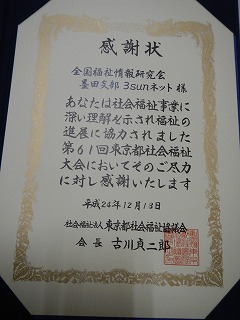 感謝状
全国福祉情報研究会
墨田支部 3sunネット 様
あなたは社会福祉事業に
深い理解を示され福祉の
進展に協力されました
第61回東京都社会福祉
大会においてそのご尽力
に対し感謝いたします
平成24年12月13日
社会福祉法人 東京都社会福祉協議会
会長 古川貞二郎